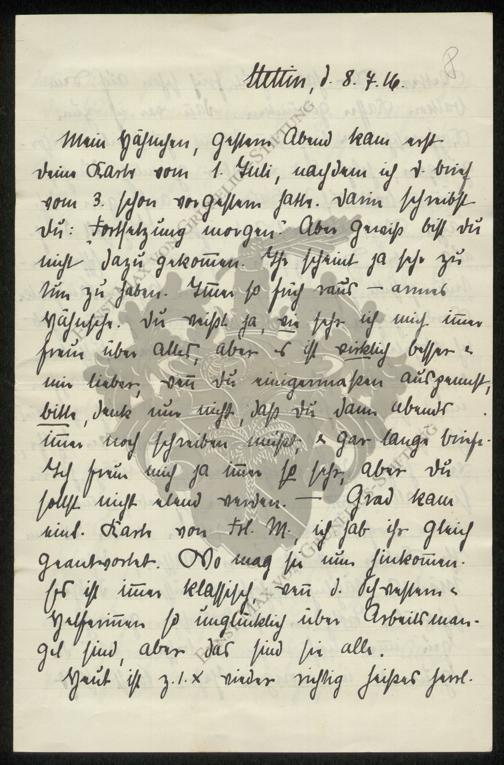 8
Stettin, d. 8.7.16.
Mein Hähnchen, gestern Abend kam erst
deine Karte vom 1. Juli, nachdem ich d. Brief
vom 3. schon vorgestern hatte. Darin schreibst
du: "Fortsetzung morgen." Aber gewiß bist du
nicht dazu gekommen. Ihr scheint ja sehr zu
tun zu haben. Immer so früh raus – armes
Hähnche. Du weißt ja, wie sehr ich mich immer
freue über alles, aber es ist wirklich besser u
mir lieber, wenn du einigermaßen ausspannst,
bitte, denk nur nicht, daß du dann abends
immer noch schreiben mußt, u gar lange Briefe.
Ich freue mich ja immer so sehr, aber du
sollst nicht elend werden. — Grad kam
eine Karte von Frl. M., ich hab ihr gleich
geantwortet. Wo mag sie nun hinkommen.
Es ist immer klassisch, wenn d. Schwestern u
Helferinnen so unglücklich über Arbeitsman-
gel sind, aber das sind sie alle.
Heut ist z. 1. x wieder richtig heißes herrl.
ERNST MAX VON GRUNELIUS-STIFTUNG
ERNST MAX VON GRUNELIUS-STIFTUNG